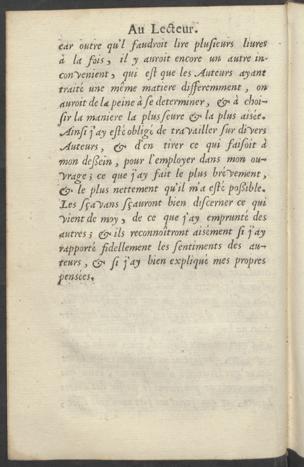 Au Lecteur.
car outre qu'l faudroit lire plusieurs livres
à la fois, il y auroit encore un autre in-
convenient, qui est que les Auteurs ayant
traité une même matiere differemment, on
auroit de la peine à se determiner, & à choi-
sir la maniere la plus seure & la plus aisée.
Ainsi j'ay esté obligé de travailler sur divers
Auteurs, & d'en tirer ce qui faisoit à
mon deßein, pour l'employer dans mon ou-
vrage; ce que j'ay fait le plus brévement,
& le plus nettement qu'il m'a esté poßible.
Les sçavans sçauront bien discerner ce qui
vient de moy, de ce que j'ay emprunté des
autres; & ils reconnoîtront aisément si j'ay
rapporté fidellement les sentiments des au-
teurs, & si j'ay bien expliqué mes propres
pensées.